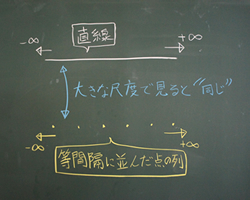 直線
-∞ +∞
大きな尺度で見ると"同じ"
-∞ +∞
等間隔に並んだ点の列